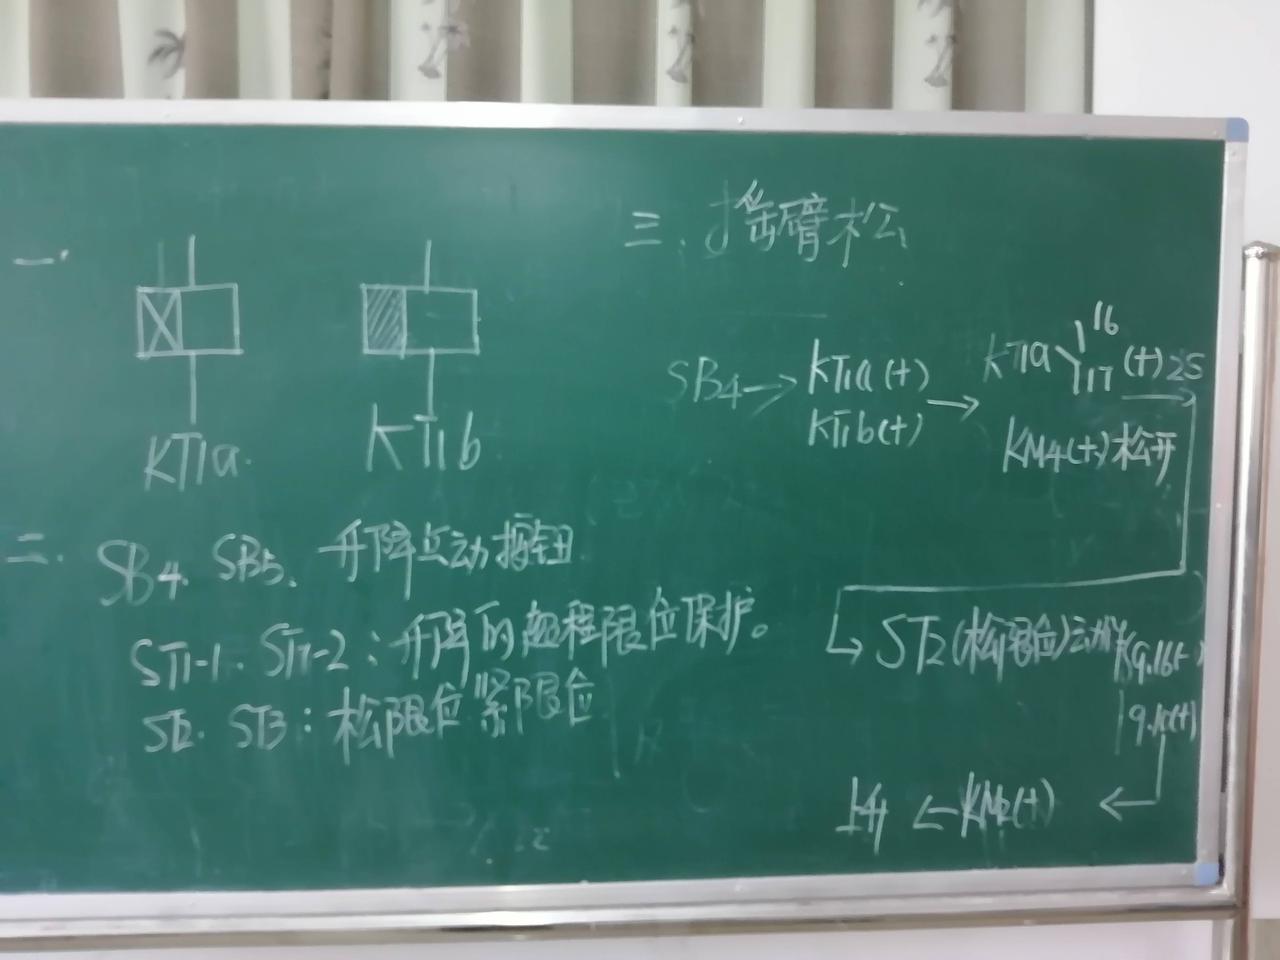 一、
KT1a.
KT1b
二. SB4. SB5. 升降点动按钮
ST1-1. ST1-2：升降的超程限位保护。
ST2. ST3：松限位 紧限位
三、摇臂松
SB4→ KT1a(+) → KT1a 16 (+) 2S
KT1b(+) 17
KM4(+) 松开
ST2(松限位)动作
9.16(-)
上升 ← KM2(+) ←